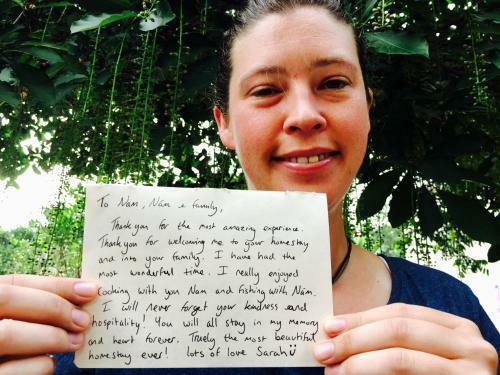 To Nam, Năm & family,
Thank you for the most amazing experience.
Thank you for welcoming me to your homestay
and into your family. I have had the
most wonderful time. I really enjoyed
cooking with you Nam and fishing with Năm.
I will never forget your kindness and
hospitality! You will all stay in my memory
and heart forever. Truely the most beautiful
homestay ever! lots of love Sarah ü